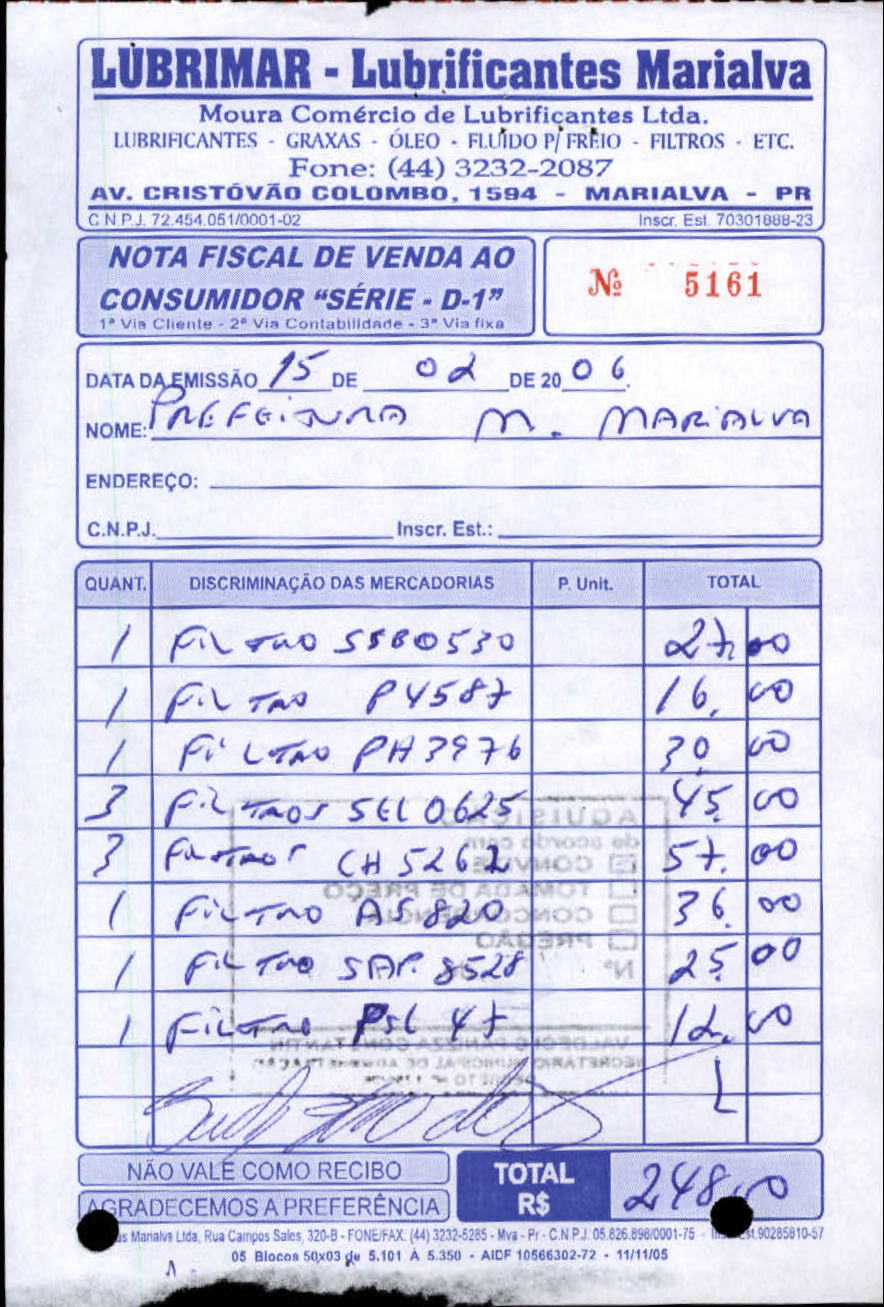 LUBRIMAR - Lubrificantes Marialva
Moura Comércio de Lubrificantes Ltda.
LUBRIFICANTES - GRAXAS - ÓLEO - FLUÍDO P/ FREIO - FILTROS - ETC.
Fone: (44) 3232-2087
AV. CRISTÓVÃO COLOMBO, 1594 - MARIALVA - PR
C.N.P.J. 72.454.051/0001-02 Inscr. Est. 70301888-23
NOTA FISCAL DE VENDA AO
CONSUMIDOR “SÉRIE - D-1”
1ª Via Cliente - 2ª Via Contabilidade - 3ª Via fixa
Nº 5161
DATA DA EMISSÃO 15 DE 02 DE 20 06.
NOME: PREFEITURA M. MARIALVA
ENDEREÇO:
C.N.P.J. Inscr. Est.:
QUANT. DISCRIMINAÇÃO DAS MERCADORIAS P. Unit. TOTAL
1 FILTRO SSB0530 27,00
1 FILTRO P4587 16,00
1 FILTRO PH3976 30,00
3 FILTROS SEL0625 45,00
3 FILTROS CH5262 57,00
1 FILTRO AS820 36,00
1 FILTRO SAP.8528 25,00
1 FILTRO PSL47 12,00
AQUISIÇÃO
de acordo com
CONVITE
TOMADA DE PREÇO
CONCORRÊNCIA
PREGÃO
Nº
SECRETÁRIO MUNICIPAL DE ADMINISTRAÇÃO
NÃO VALE COMO RECIBO
AGRADECEMOS A PREFERÊNCIA
TOTAL R$ 248,00
Marialva Ltda, Rua Campos Sales, 320-B - FONE/FAX. (44) 3232-5285 - Mva - Pr - C.N.P.J. 05.826.898/0001-75 - Est.90285810-57
05 Blocos 50x03 de 5.101 À 5.350 - AIDF 10566302-72 - 11/11/05